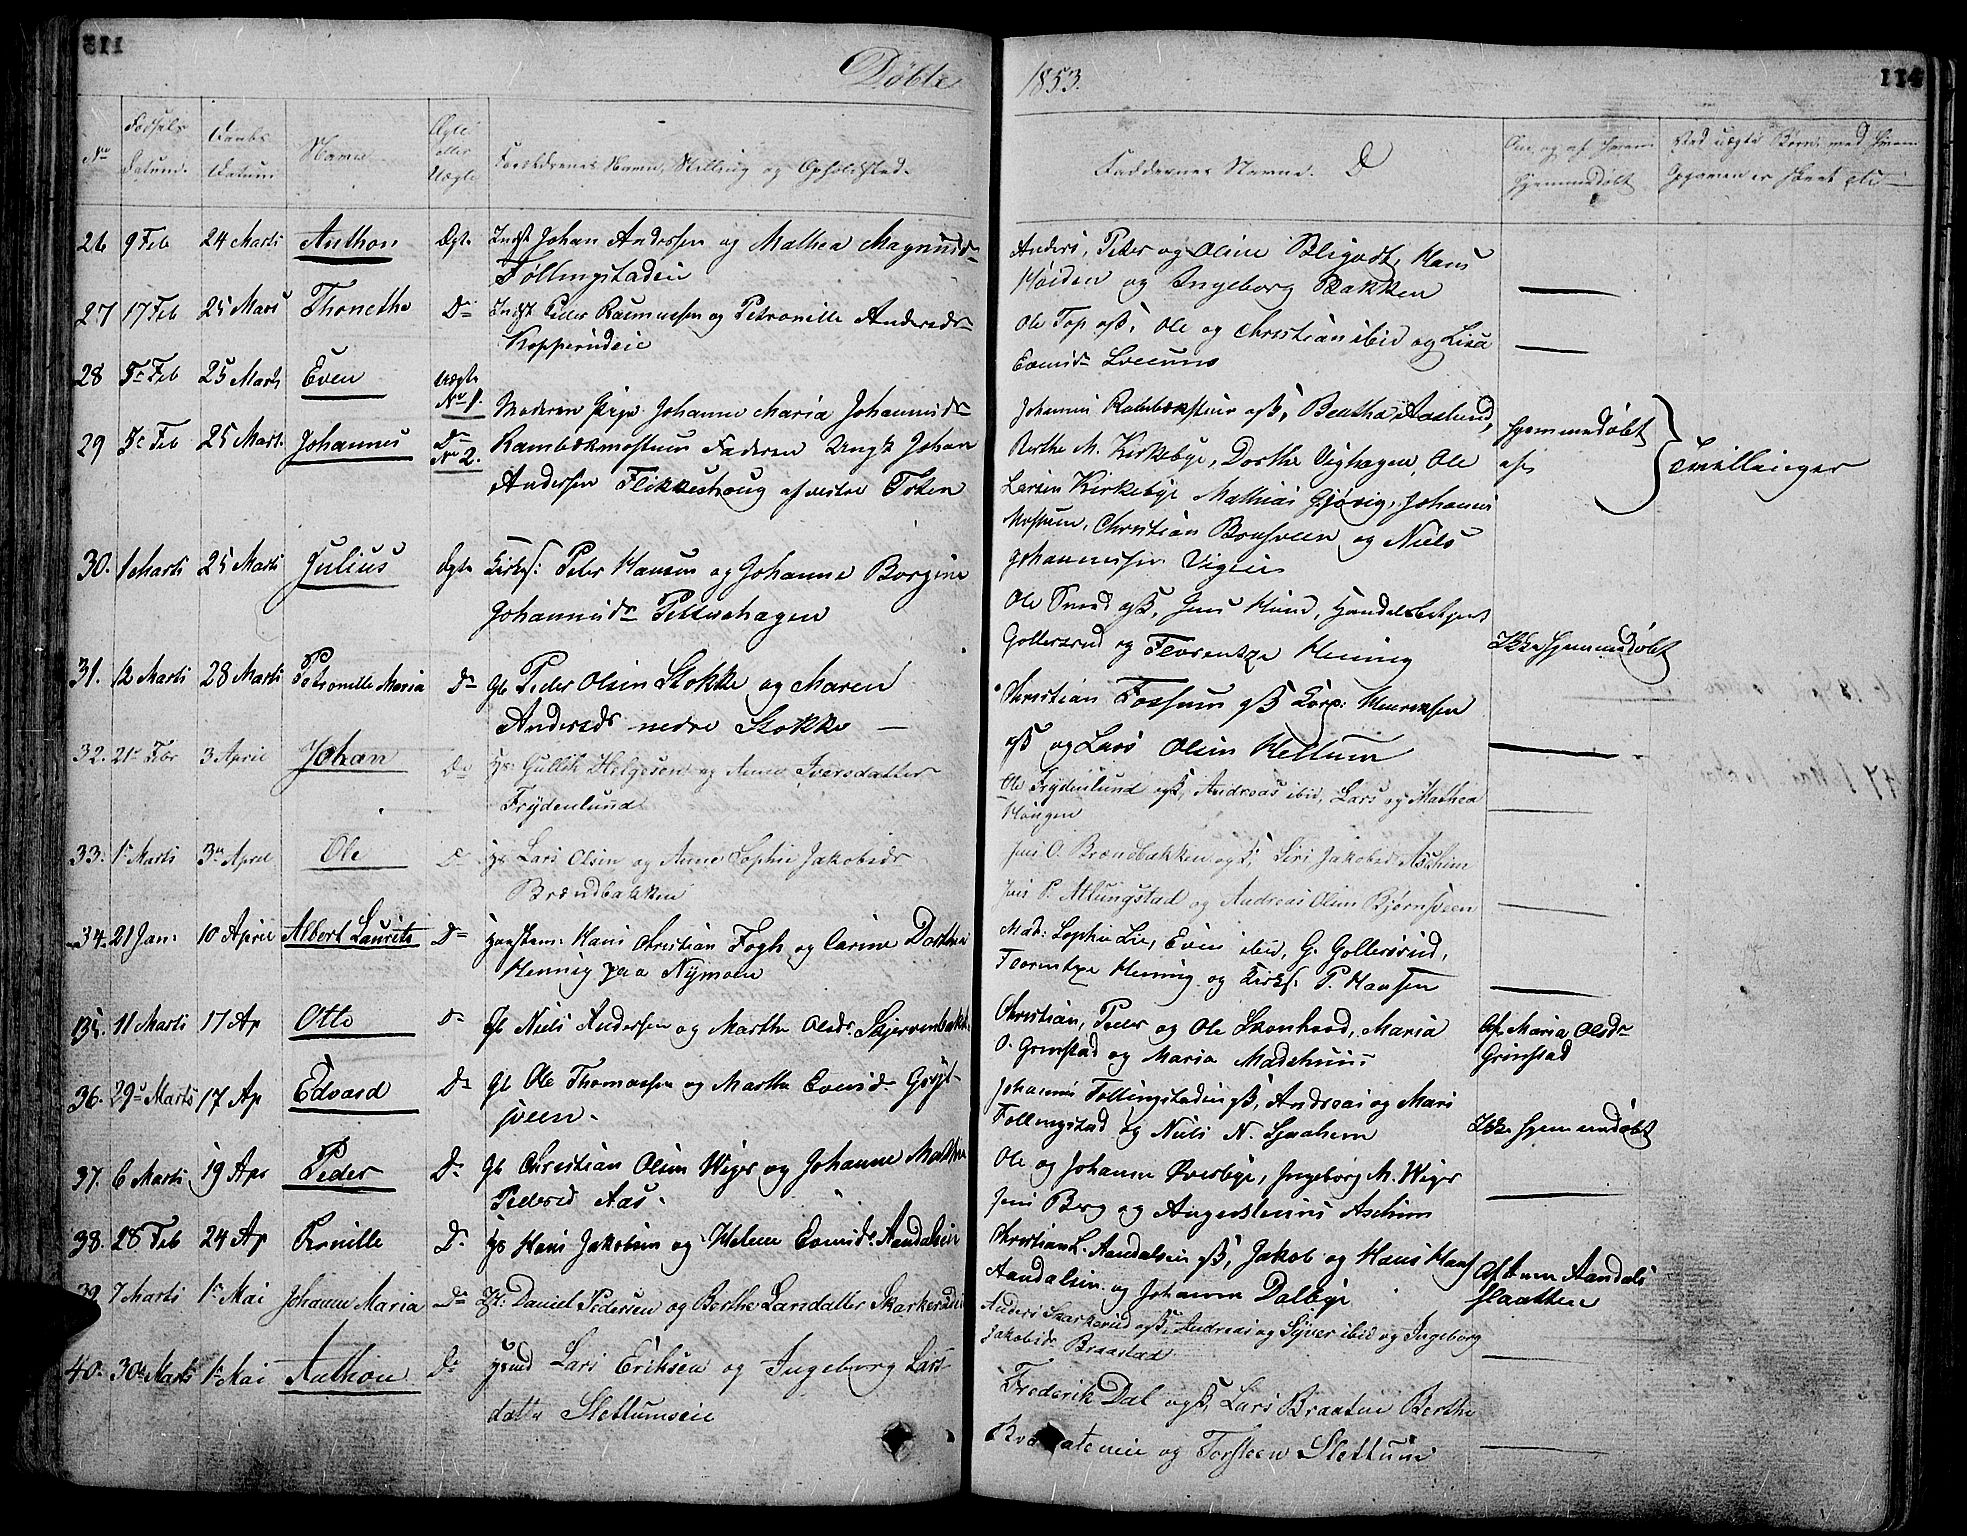 Døbte
1853.
114
No
Fødsels Datum.
Daabs Datum
Navne
Ægte eller Uægte
Forældrenes Navne, Stilling og Opholdsted.
Faddernes Navne.
Om og af hvem hjemmedøbt
26 9 Feb 24 Marts Anthon Ægte Indst Johan Andersen og Mathea Magnusdr
Føllingstadeie
Anders, Peter og Oline Bligodt, Hans
Høiden og Ingeborg Bakken
27 17 Feb 25 Mars Thonethe Do Indst Peder Rasmussen og Petronille Andersdr
Kopperudeie
Ole Top , Ole og Christian ibid og Lisa
Evensdr
28 5te Feb 25 Marts Even uægte No 1.
Moderen Pige Johanne Maria Johannesdr
29 5te Feb 25 Mart. Johannes Do No 2.
Faderen Ungk Johan
Andersen Flikkeshoug af vestre Toten
Johannes , Berthe Aaslund,
Berthe M. Kirkebye, Dorthe Vighagen, Ole
Larsen Kirkebye Mathias Gjøvig, Johannes
Mostuen, Christian Brusveen og Niels
Johannessen Vigeie
hjemmedøbt
Tvillinger
30. 1 Marts 25 Marts Julius Ægte Kirkes: Peter Hansen og Johanne Borgine
Johannesdr Pettershagen
Ole , Jens Hund, Handelsbetjent
Gollerud og Florentze Henning
Ikke hjemmedøbt
31. 12 Marts 28 Marts Petronille Maria Do Gb Peder Olsen Stokke og Maren
Andersdr nedre Stokke —
Christian Fossum Korp: Henriksen
og Lars Olsen Hellum
32. 21de Feb 3 April Johan Do Hs Gullik Helgesen og Anne Iversdatter
Frydenlund
Ole Frydenlund , Andreas ibid, Lars og Mathea
Haugen
33. 1te Marts 3die April Ole Do Hs Lars Olsen og Anne Sophie Jakobsdr
Brændbakken
Jens O. Brændbakken , Siri Jakobsdr Aschim
Jens P. Atlungstad og Andreas Olsen Bjørnsveen
34. 21 Jan. 10 April Albert Laurits Do Hans Christian Fogh og Carine Dorthea
Henning paa Nymoen
Mad: Sophie Lie, Even ibid, G. Gollersrud,
Florentze Henning og Kirks: P. Hansen
35. 11 Marts 17 Ap Otto Do Gb Niels Andersen og Marthe Olsdr. Skjerrenbakke
Christian, Peder og Ole Skonhood, Maria
O. Grimstad og Maria Madshuus
Af Maria Olsdr
Grimstad
36. 29de Marts 17 Ap Edvard Do Gb Ole Thomassen og Marthe Evensdr
sveen.
Johannes Føllingstadeie , Andreas og Mari
Føllingstad og Niels N. Sjaaheim
Ikke hjemmedøbt
37. 6 Marts 19 Apr Peder Do Gb Christian Olsen Wiger og Johanne Mathea
Pedersd Aas.
Ole og Johanne Øverbye, Ingeborg M. Wiger
Jens Berg og Augustinus Aschim
38. 28 Feb 24 Ap Pernille Do Hs Hans Jakobsen og Helene Evensdr. Aandalseie
Christian L. Aandalseie , Jakob og Hans Hans
Aandalseie og Johanne Dalbye
Af Aandals
slaatten
39. 7 Marts 1te Mai Johanne Maria Do Daniel Pedersen og Berthe Larsdatter Skarkerudeie
Anders Skarkerud , Andreas og Syver ibid og Ingeborg
Jakobsdr Braastad
40. 30te Marts 1te Mai Anthon Do Lars Eriksen og Ingeborg Lars-
datter Slettumseie
Frederik Dal , Lars Braateneie Berthe
og Torsteen Slettum